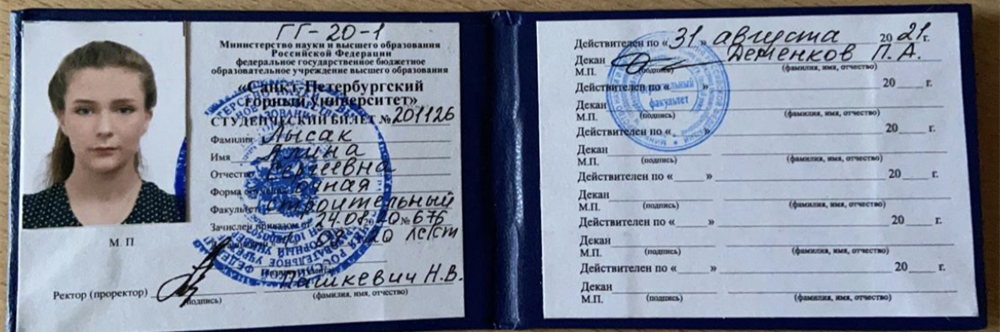 ГГ-20-1
Министерство науки и высшего образования
Российской Федерации
федеральное государственное бюджетное
образовательное учреждение высшего образования
«Санкт-Петербургский
горный университет»
СТУДЕНЧЕСКИЙ БИЛЕТ № 201126
Фамилия Лысак
Имя Алина
Отчество Сергеевна
Форма обучения очная
Факультет Строительный
Зачислен приказом от 24.08.2020 № 676
М. П
Пашкевич Н.В.
Ректор (проректор)
(подпись) (фамилия, имя, отчество)
Действителен по «31» августа 2021 г.
Декан Деменков П.А.
М.П. (подпись) (фамилия, имя, отчество)
Действителен по « » 20 г.
Декан
М.П. (подпись) (фамилия, имя, отчество)
Действителен по « » 20 г.
Декан
М.П. (подпись) (фамилия, имя, отчество)
Действителен по « » 20 г.
Декан
М.П. (подпись) (фамилия, имя, отчество)
Действителен по « » 20 г.
Декан
М.П. (подпись) (фамилия, имя, отчество)
Действителен по « » 20 г.
Декан
М.П. (подпись) (фамилия, имя, отчество)